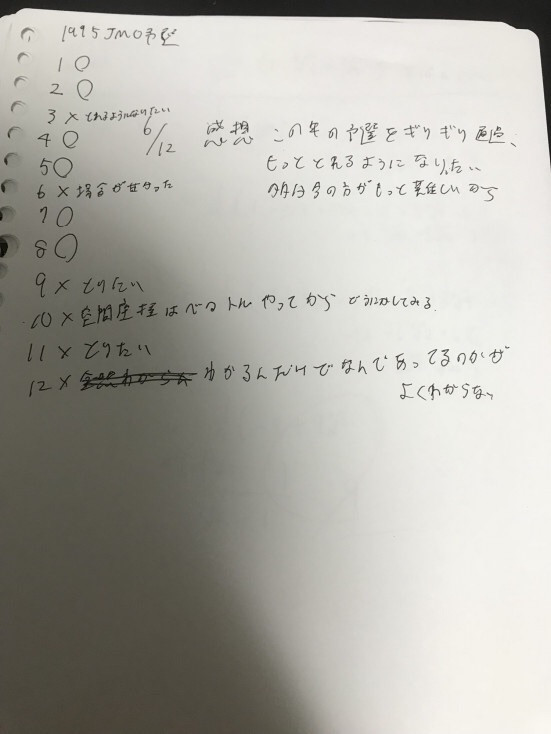 1995 JMO予選
1 〇
2 〇
3 × とれるようになりたい
4 〇
6/12
5 〇
6 × 場合分けが甘かった
7 〇
8 〇
9 × とりたい
10 × 空間座標はベクトルやってからどうにかしてみる.
11 × とりたい
12 × わかるんだけどなんであってるのかが
よくわからない
感想 この年の予選をぎりぎり通過、
もっととれるようになりたい
多分今の方がもっと難しいから